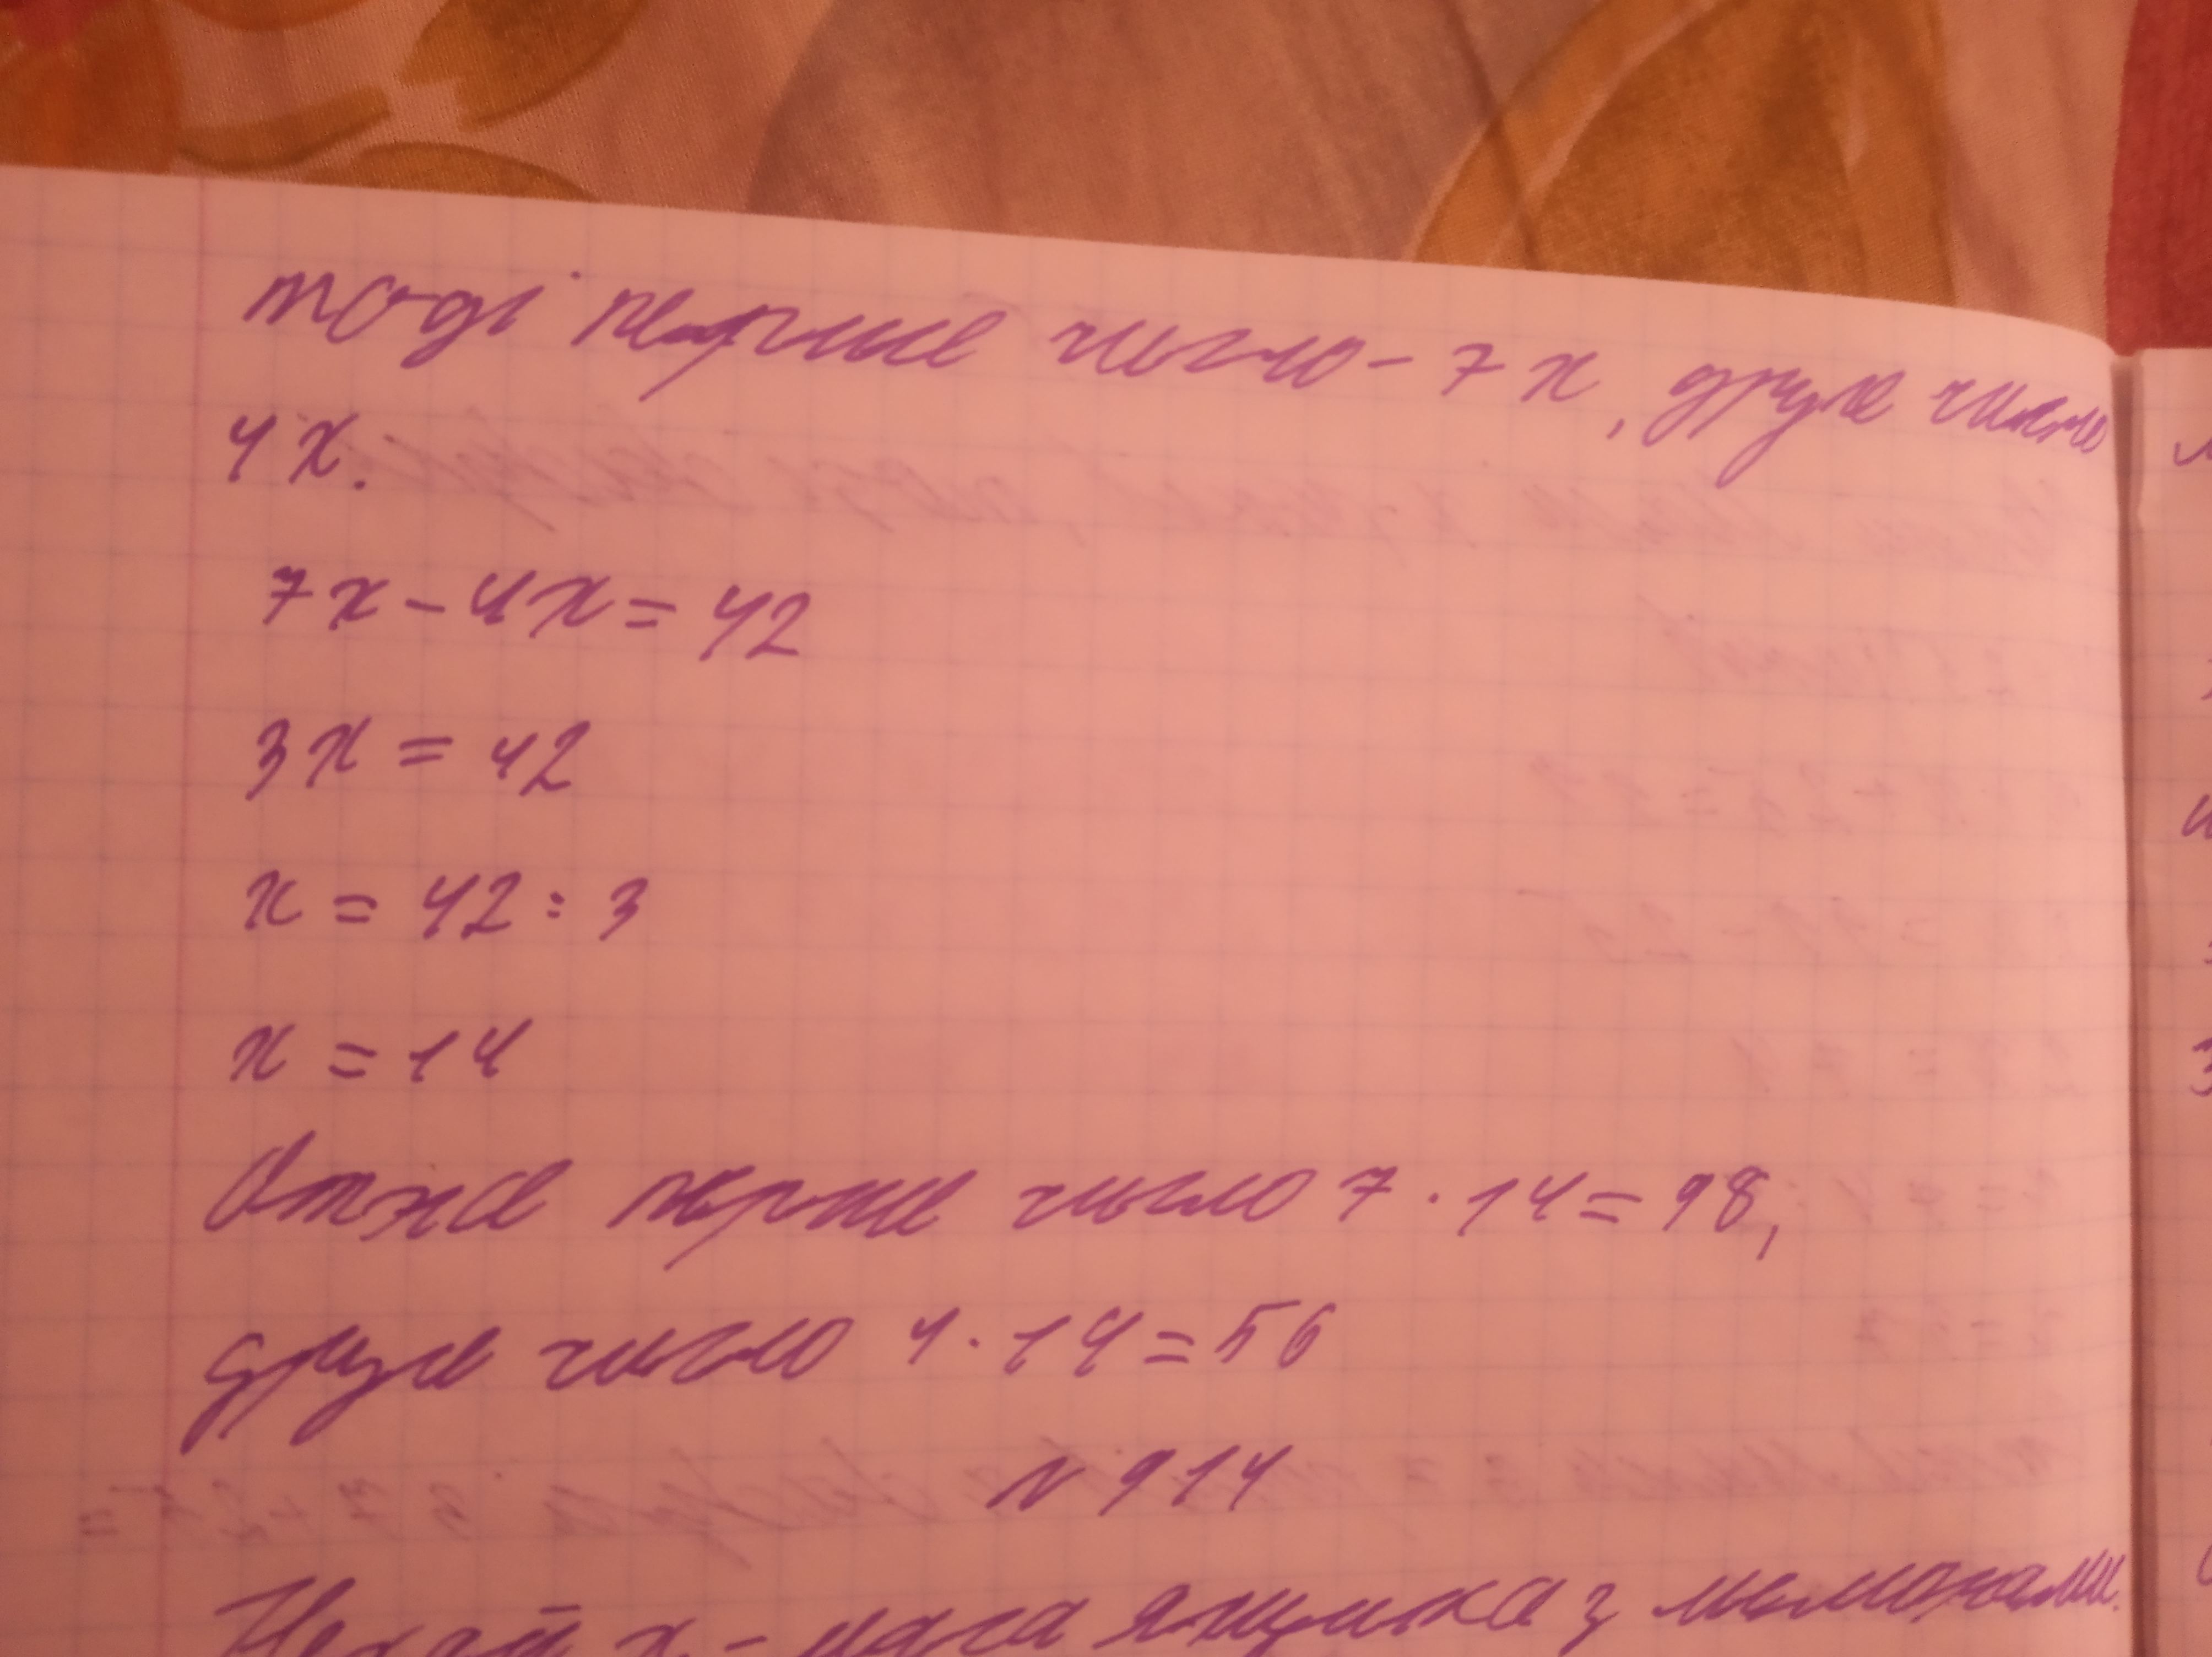 тоді перше число - 7x, друге число
4x.
7x - 4x = 42
3x = 42
x = 42 : 3
x = 14
Отже перше число 7 · 14 = 98,
друге число 4 · 14 = 56
N 914
Нехай x - маса ящика з лимонами.